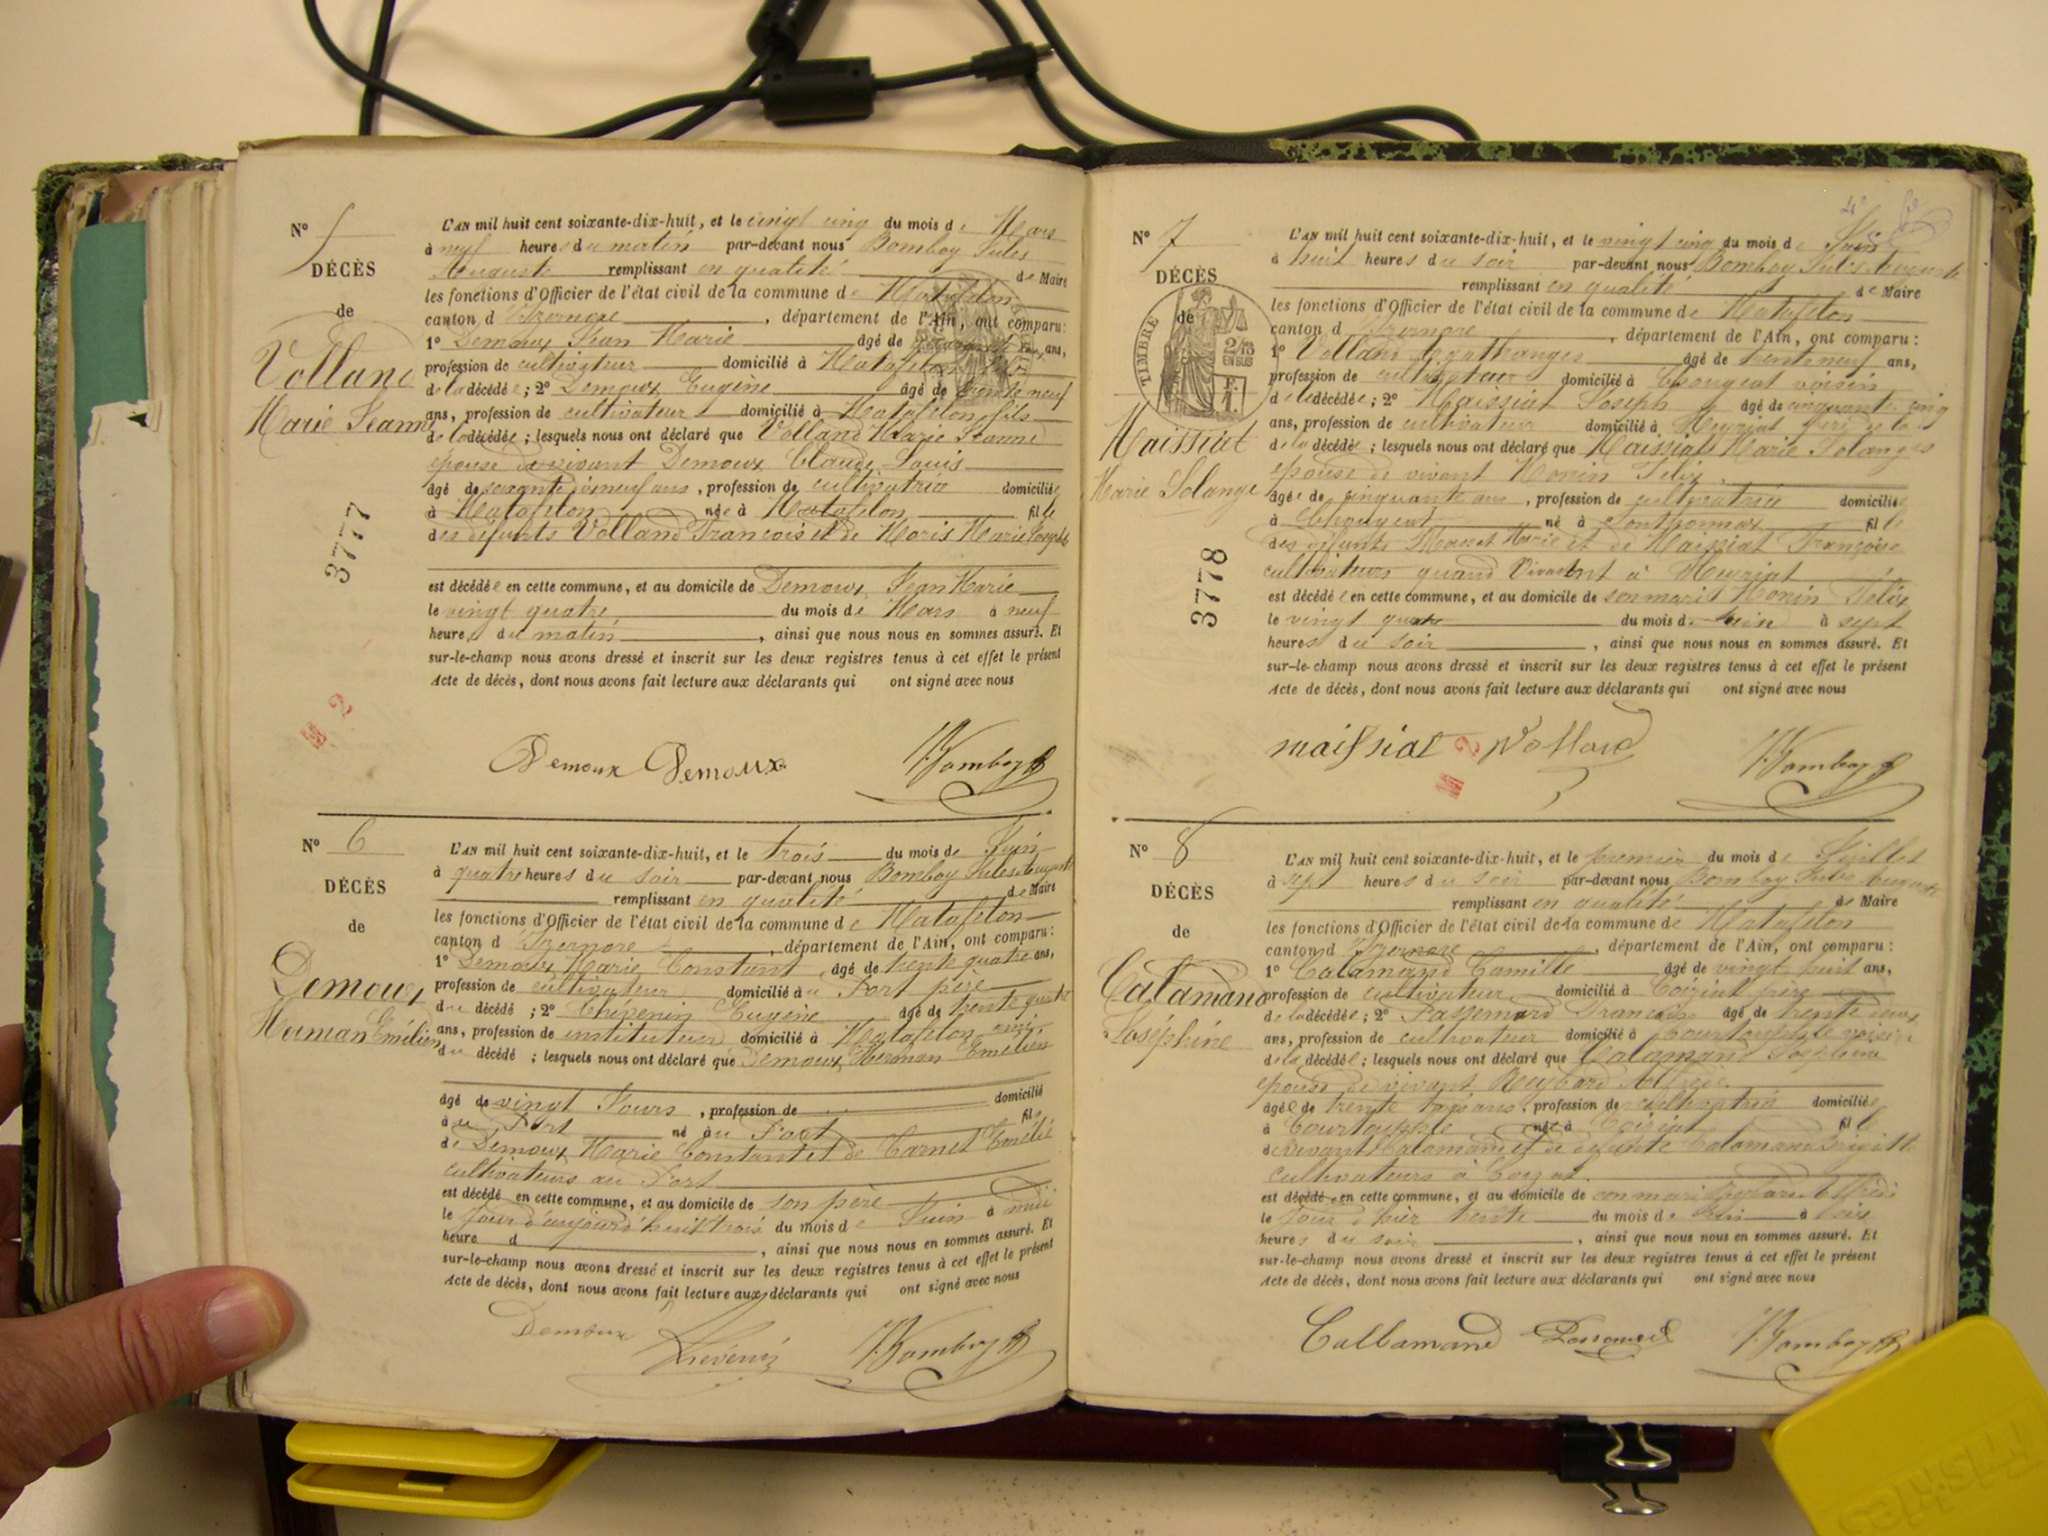 N° 5
DÉCÈS
de
Volland
Marie Jeanne
3777
M 2
L'AN mil huit cent soixante-dix-huit, et le vingt cinq du mois de Mars
à neuf heures du matin par-devant nous Bomboy Jules
Auguste remplissant en qualité de Maire
les fonctions d'Officier de l'état civil de la commune de Matafelon
canton d'Izernore, département de l'Ain, ont comparu:
1° Demoux Jean Marie âgé de ans,
profession de cultivateur domicilié à Matafelon
de la décédée; 2° Demoux Eugène âgé de trente neuf
ans, profession de cultivateur domicilié à Matafelon fils
de la décédée; lesquels nous ont déclaré que Volland Marie Jeanne
épouse de vivant Demoux Claude Louis
âgé de soixante dix neuf ans, profession de cultivatrice domiciliée
à Matafelon née à Matafelon fille
des défunts Volland François et de Moris Marie Josephte
est décédée en cette commune, et au domicile de Demoux Jean Marie
le vingt quatre du mois de Mars à neuf
heures du matin, ainsi que nous nous en sommes assuré. Et
sur-le-champ nous avons dressé et inscrit sur les deux registres tenus à cet effet le présent
Acte de décès, dont nous avons fait lecture aux déclarants qui ont signé avec nous
Demoux Demoux Bomboy
N° 6
DÉCÈS
de
Demoux
Herman Emélien
L'AN mil huit cent soixante-dix-huit, et le trois du mois de Juin
à quatre heures du soir par-devant nous Bomboy Jules Auguste
remplissant en qualité de Maire
les fonctions d'Officier de l'état civil de la commune de Matafelon
canton d'Izernore, département de l'Ain, ont comparu:
1° Demoux Marie Constant âgé de trente quatre ans,
profession de cultivateur domicilié au Port père
du décédé; 2° Thévenin Eugène âgé de trente quatre
ans, profession de instituteur domicilié à Matafelon ami
du décédé; lesquels nous ont déclaré que Demoux Herman Emélien
âgé de vingt Jours, profession de domicilié
au Port né au Port fils
de Demoux Marie Constant et de Carnet Emélie
cultivateurs au Port
est décédé en cette commune, et au domicile de son père
le jour d'aujourd'huit trois du mois de Juin à midi
heure d, ainsi que nous nous en sommes assuré. Et
sur-le-champ nous avons dressé et inscrit sur les deux registres tenus à cet effet le présent
Acte de décès, dont nous avons fait lecture aux déclarants qui ont signé avec nous
Demoux Thévenin Bomboy
N° 7
DÉCÈS
de
TIMBRE
2/10
EN SUS
Maissiat
Marie Solange
3778
L'AN mil huit cent soixante-dix-huit, et le vingt cinq du mois de Juin
à huit heures du soir par-devant nous Bomboy Jules Auguste
remplissant en qualité de Maire
les fonctions d'Officier de l'état civil de la commune de Matafelon
canton d'Izernore, département de l'Ain, ont comparu:
1° Volland Agathanges âgé de trente neuf ans,
profession de cultivateur domicilié à Chougeat voisin
de la décédée; 2° Maissiat Joseph âgé de cinquante cinq
ans, profession de cultivateur domicilié à Meyriat frère de la
de la décédée; lesquels nous ont déclaré que Maissiat Marie Solanges
épouse de vivant Monin Félix
âgée de cinquante ans, profession de cultivatrice domiciliée
à Chougeat né à fille
des défunts Marie et de Maissiat Françoise
cultivateurs quand Vivaient à Meyriat
est décédée en cette commune, et au domicile de son mari Monin Félix
le vingt quatre du mois de à sept
heures du soir, ainsi que nous nous en sommes assuré. Et
sur-le-champ nous avons dressé et inscrit sur les deux registres tenus à cet effet le présent
Acte de décès, dont nous avons fait lecture aux déclarants qui ont signé avec nous
maissiat Volland Bomboy
M 2
N° 8
DÉCÈS
de
Calamand
Joséphine
L'AN mil huit cent soixante-dix-huit, et le premier du mois de Juillet
à sept heures du soir par-devant nous Bomboy Jules Auguste
remplissant en qualité de Maire
les fonctions d'Officier de l'état civil de la commune de Matafelon
canton d'Izernore, département de l'Ain, ont comparu:
1° Calamand Camille âgé de vingt huit ans,
profession de cultivateur domicilié à Coiziat frère
de la décédée; 2° François âgé de trente deux
ans, profession de cultivateur domicilié à voisin
de la décédée; lesquels nous ont déclaré que Calamand Joséphine
épouse de vivant Alfred
âgée de trente ans, profession de cultivatrice domiciliée
à née à Coiziat fille
de vivant Calamand et de défunte Calamand Brigitte
cultivateurs à
est décédée en cette commune, et au domicile de son mari Alfred
le jour d'hier trente du mois de Juin à
heures du soir, ainsi que nous nous en sommes assuré. Et
sur-le-champ nous avons dressé et inscrit sur les deux registres tenus à cet effet le présent
Acte de décès, dont nous avons fait lecture aux déclarants qui ont signé avec nous
Callamand Bomboy